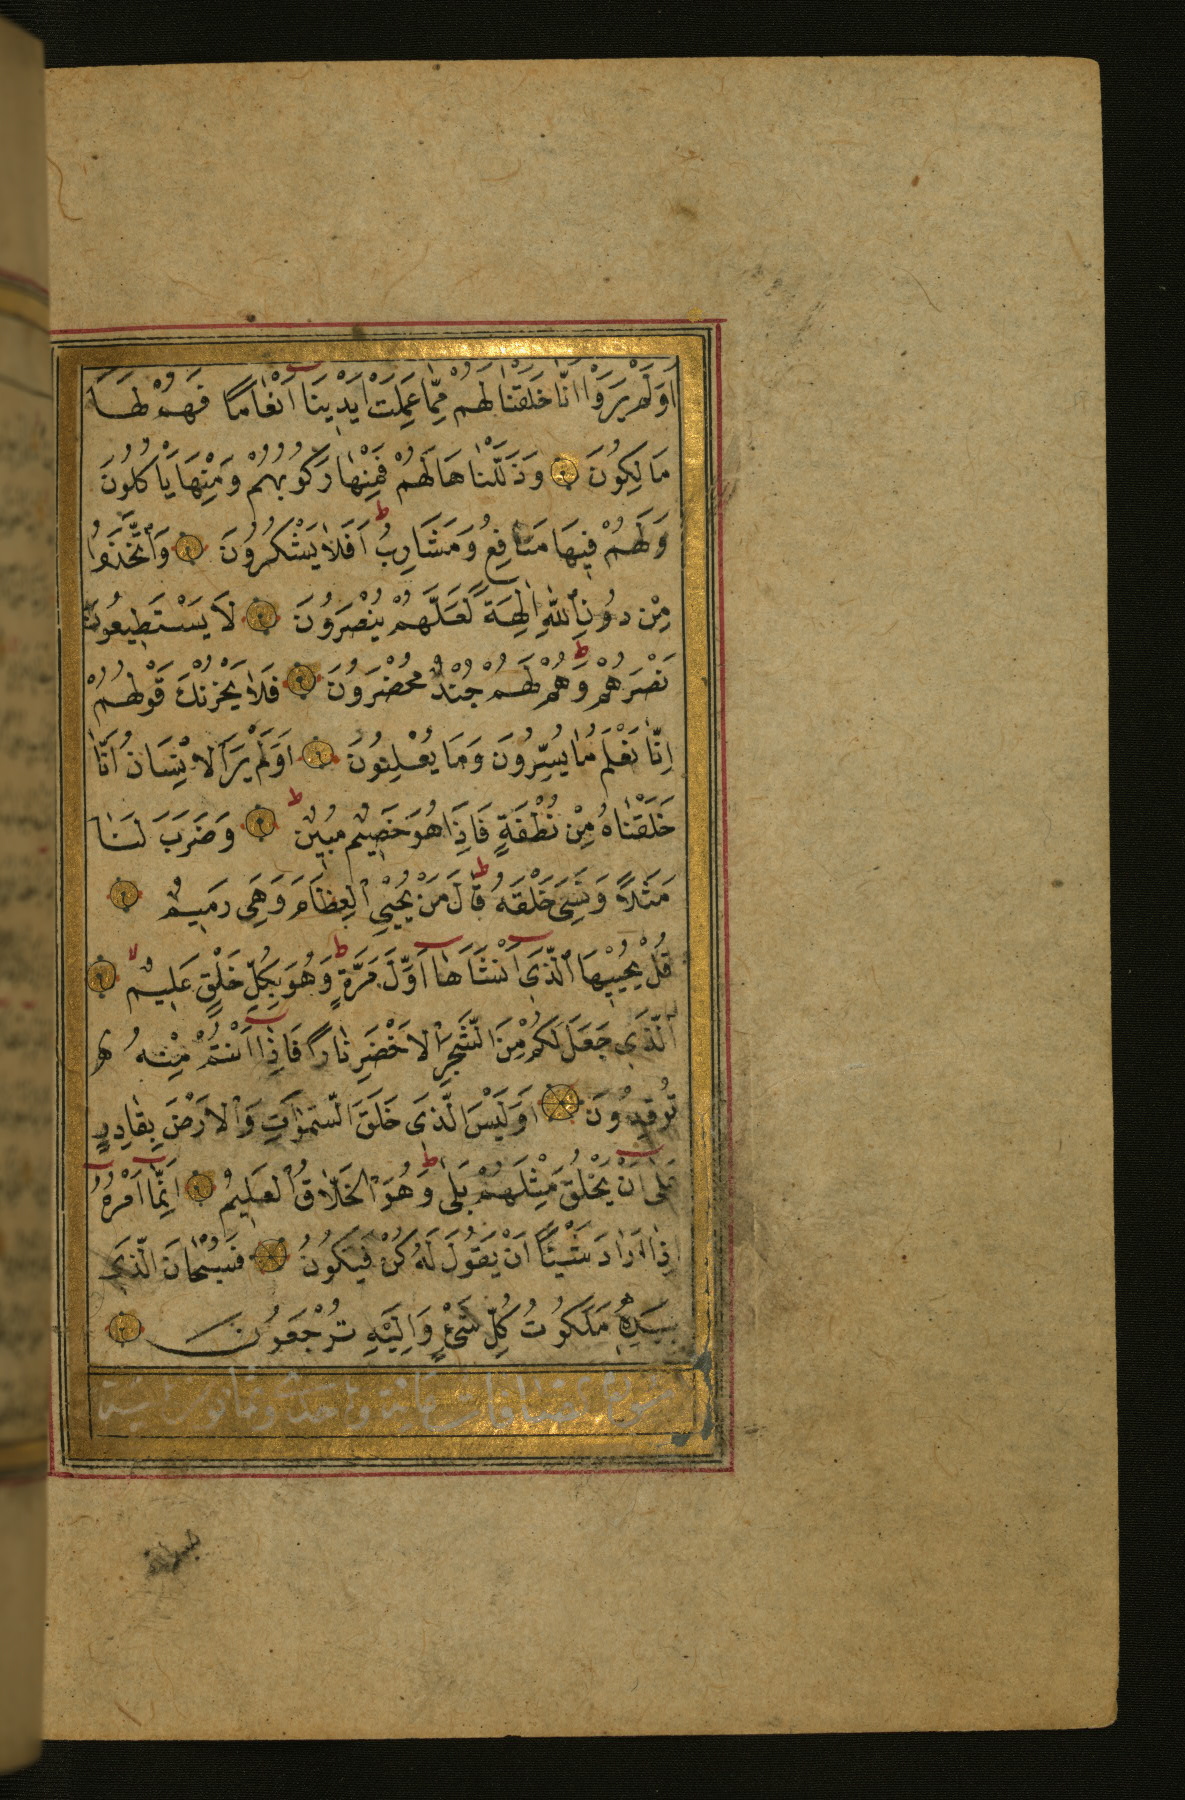 اَوَلَمْ يَرَوْا اَنَّا خَلَقْنَا لَهُمْ مِمَّا عَمِلَتْ اَيْدِينَا اَنْعَامًا فَهُمْ لَهَا
مَالِكُونَ وَذَلَّلْنَاهَا لَهُمْ فَمِنْهَا رَكُوبُهُمْ وَمِنْهَا يَاْكُلُونَ
وَلَهُمْ فِيهَا مَنَافِعُ وَمَشَارِبُ ط اَفَلَا يَشْكُرُونَ وَاتَّخَذُوا
مِنْ دُونِ اللّٰهِ اٰلِهَةً لَعَلَّهُمْ يُنْصَرُونَ لَا يَسْتَطِيعُونَ
نَصْرَهُمْ ط وَهُمْ لَهُمْ جُنْدٌ مُحْضَرُونَ فَلَا يَحْزُنْكَ قَوْلُهُمْ
اِنَّا نَعْلَمُ مَا يُسِرُّونَ وَمَا يُعْلِنُونَ اَوَلَمْ يَرَ الْاِنْسَانُ اَنَّا
خَلَقْنَاهُ مِنْ نُطْفَةٍ فَاِذَا هُوَ خَصِيمٌ مُبِينٌ ط وَضَرَبَ لَنَا
مَثَلًا وَنَسِيَ خَلْقَهُ ط قَالَ مَنْ يُحْيِي الْعِظَامَ وَهِيَ رَمِيمٌ
قُلْ يُحْيِيهَا الَّذِي اَنْشَاَهَا اَوَّلَ مَرَّةٍ ط وَهُوَ بِكُلِّ خَلْقٍ عَلِيمٌ لا
الَّذِي جَعَلَ لَكُمْ مِنَ الشَّجَرِ الْاَخْضَرِ نَارًا فَاِذَا اَنْتُمْ مِنْهُ
تُوقِدُونَ اَوَلَيْسَ الَّذِي خَلَقَ السَّمٰوَاتِ وَالْاَرْضَ بِقَادِرٍ
عَلٰى اَنْ يَخْلُقَ مِثْلَهُمْ بَلٰى ط وَهُوَ الْخَلَّاقُ الْعَلِيمُ اِنَّمَا اَمْرُهُ
اِذَا اَرَادَ شَيْئًا اَنْ يَقُولَ لَهُ كُنْ فَيَكُونُ فَسُبْحَانَ الَّذِي
بِيَدِهِ مَلَكُوتُ كُلِّ شَيْءٍ وَاِلَيْهِ تُرْجَعُونَ